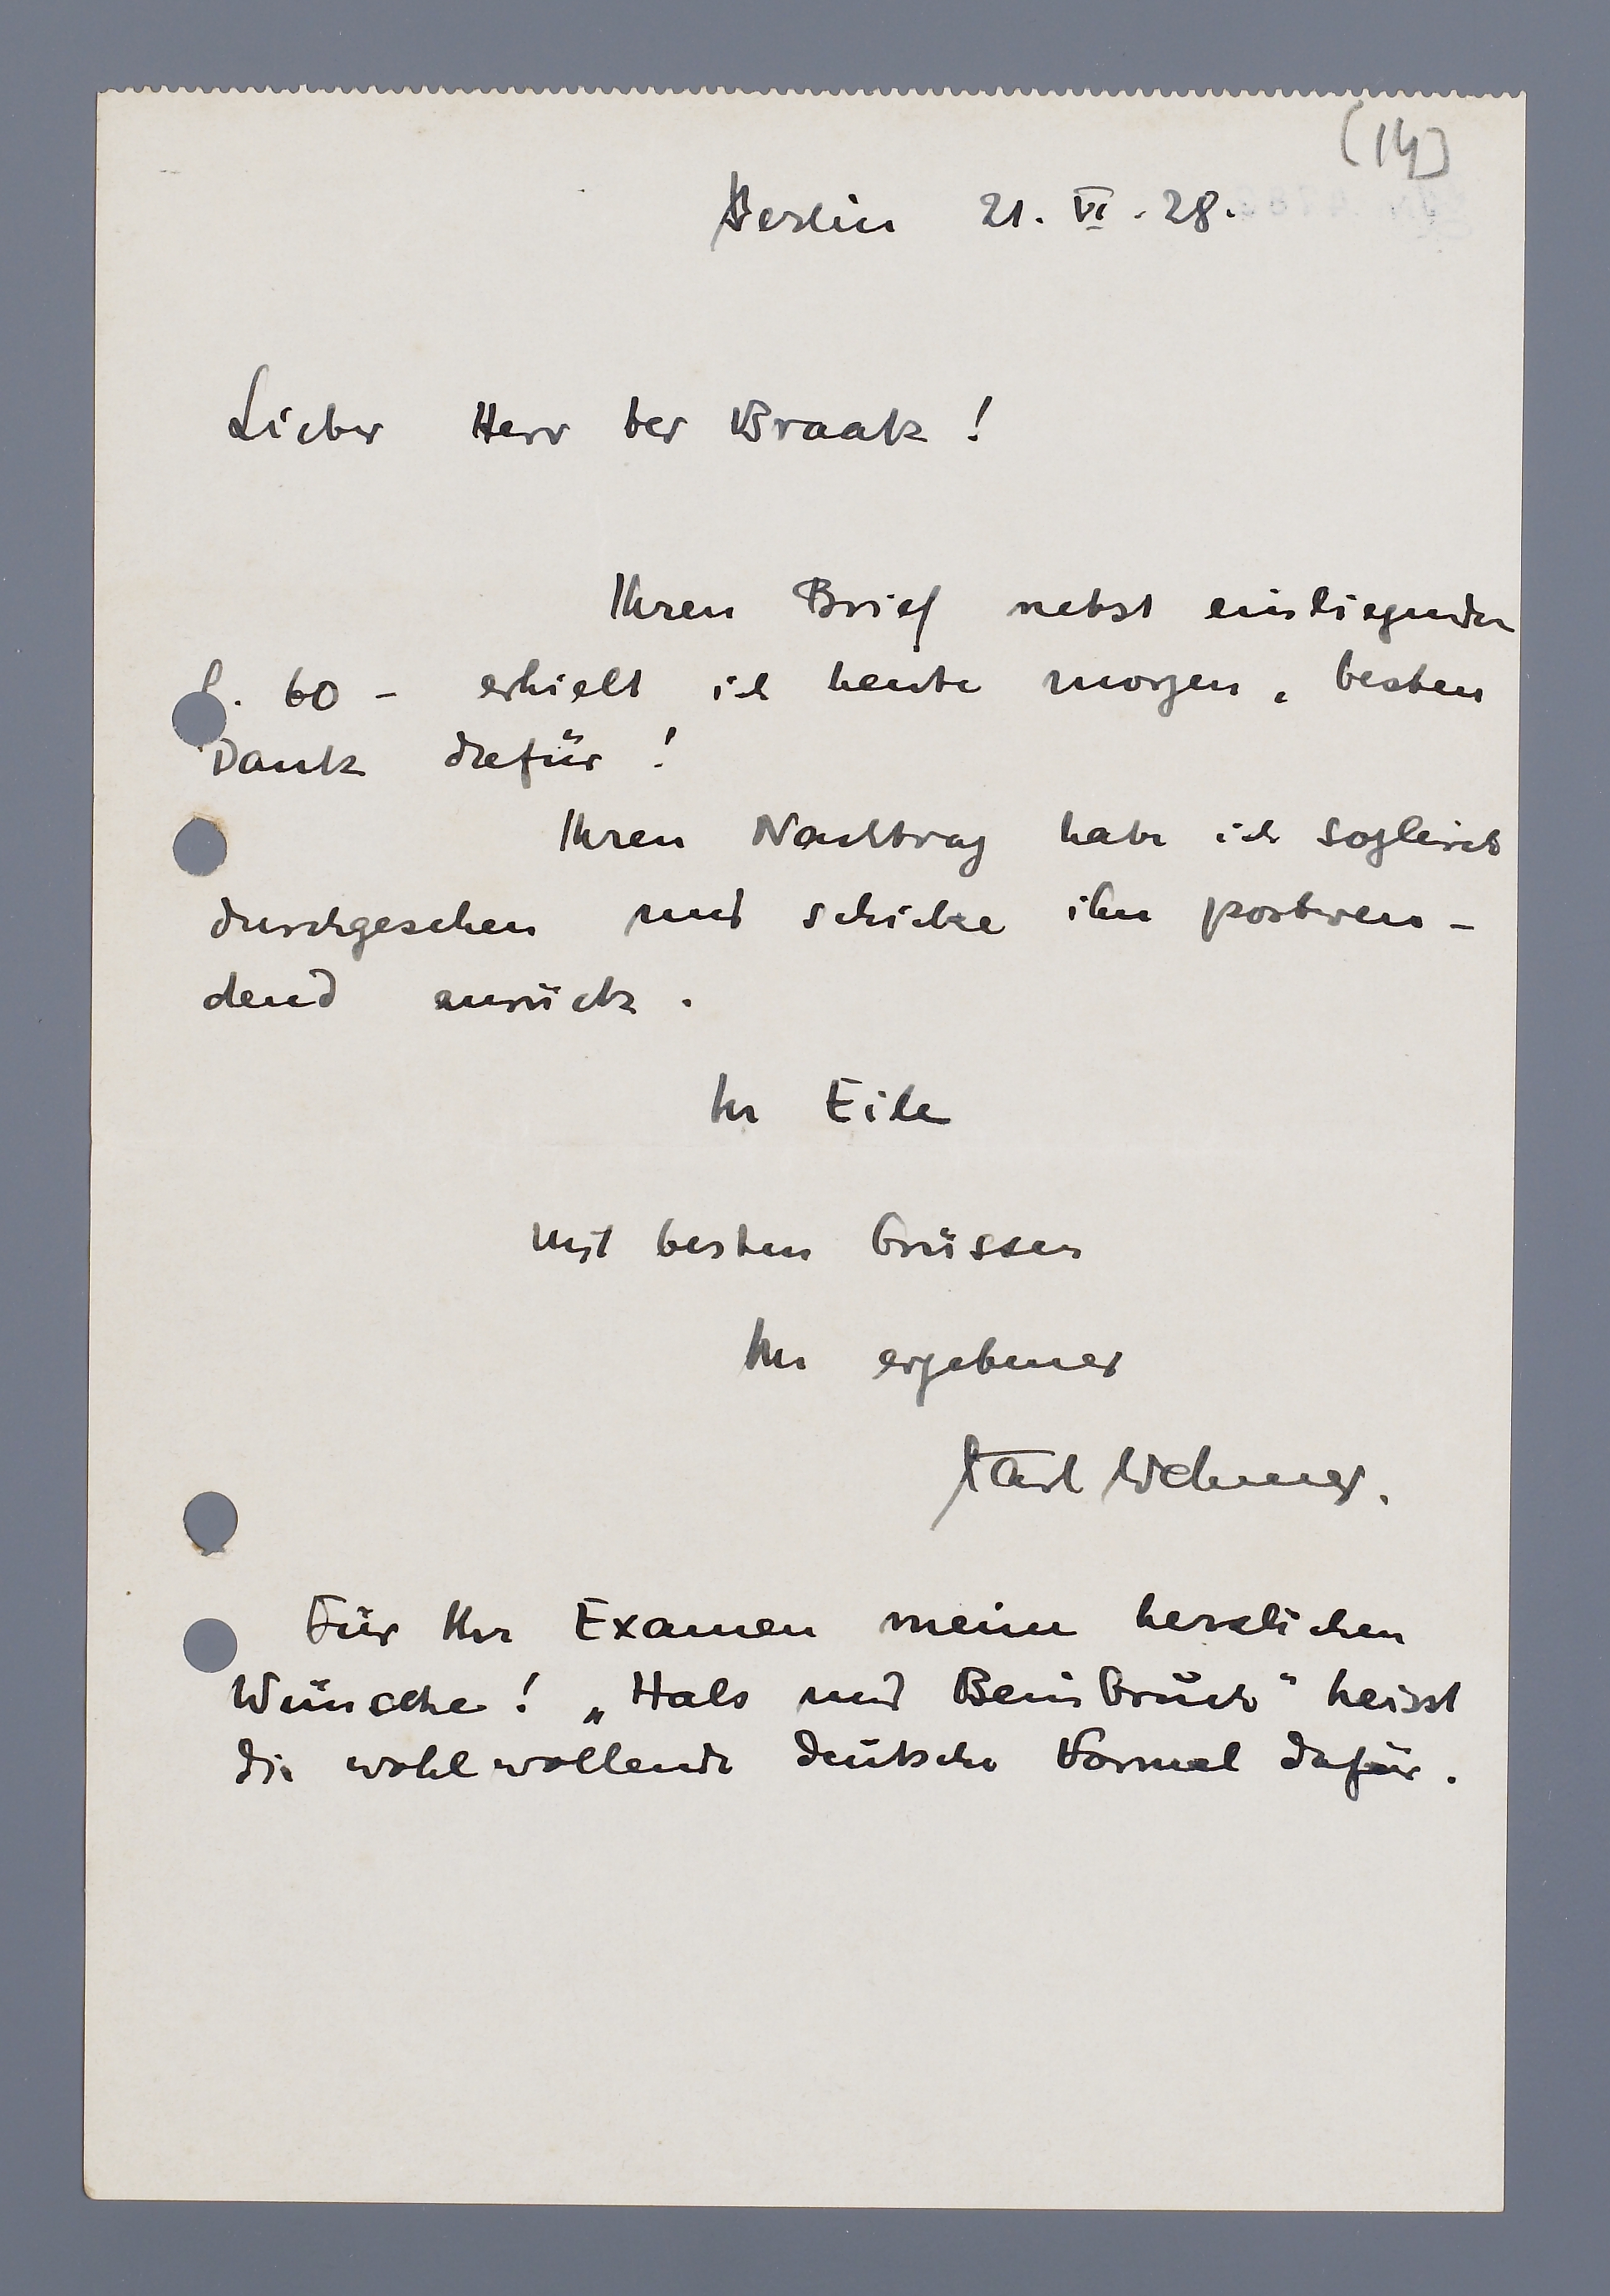 (14)
Berlin 21. VI. 28.
Lieber Herr ter Braak!
Ihren Brief nebst einliegenden
f. 60 - erhielt ich heute morgen, besten
Dank dafür!
Ihren Nachtrag habe ich sogleich
durchgesehen und schicke ihn postwen-
dend zurück.
In Eile
Mit besten Grüssen
Ihr ergebener
Karl Wehmer.
Für Ihr Examen meine herzlichen
Wünsche! „Hals und Beinbruch" heisst
die wohlwollende deutsche Formel dafür.